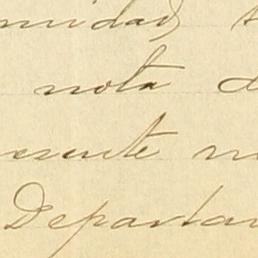 midad,
nota d
esente n
Departa